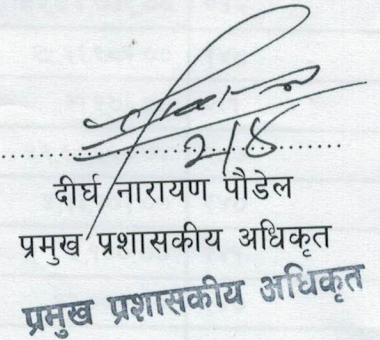 २/४
दीर्घ नारायण पौडेल
प्रमुख प्रशासकीय अधिकृत
प्रमुख प्रशासकीय अधिकृत